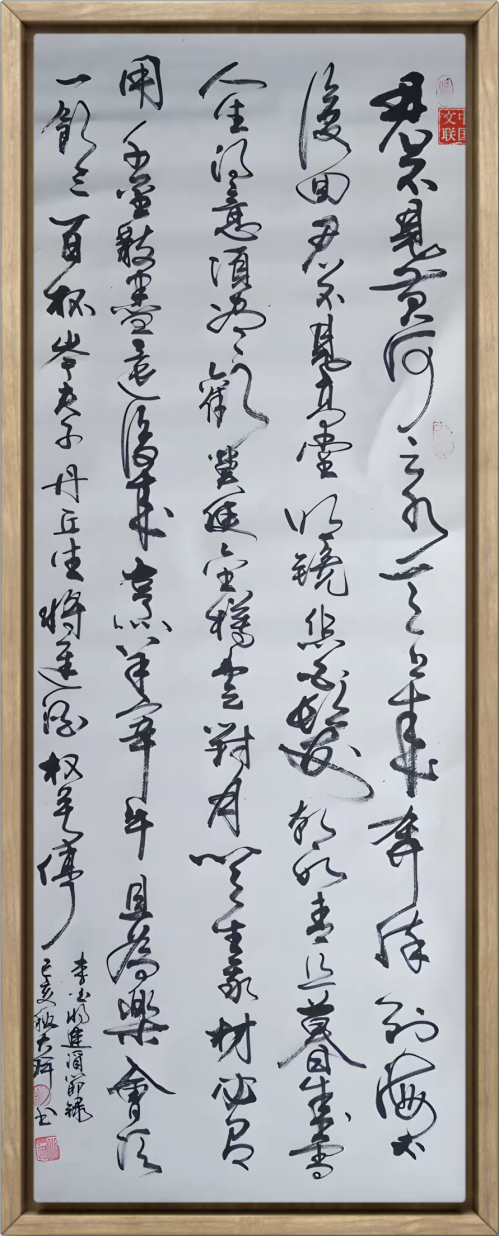 中国文联
君不見黄河之水天上来奔流到海不
復回君不見高堂明鏡悲白髮朝如青丝暮成雪
人生得意須盡歡莫使金樽空對月天生我材必有
用千金散盡還復來烹羊宰牛且為樂會須
一飲三百杯岑夫子丹丘生將進酒杯莫停
李白將進酒節錄
己亥秋大書